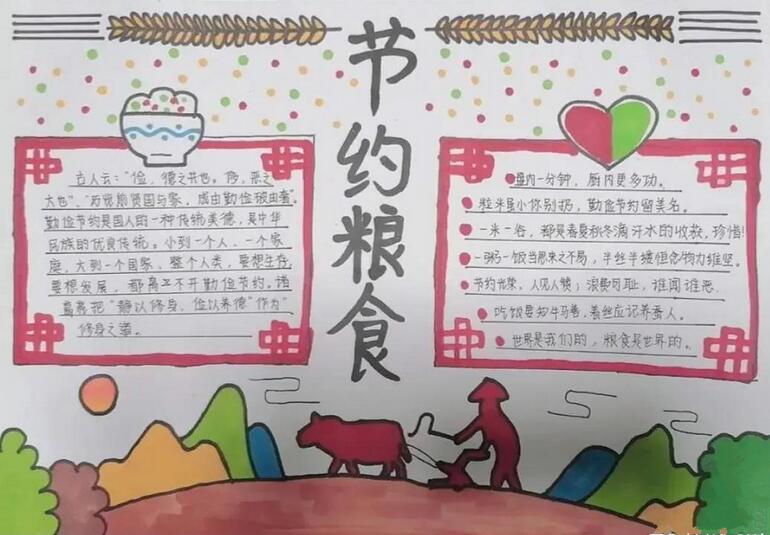 节约粮食
古人云:"俭,德之共也。侈,恶之
大也","历览前贤国与家,成由勤俭破由奢"
勤俭节约是国人的一种传统美德,是中华
民族的优良传统。小到一个人、一个家
庭,大到一个国家、整个人类,要想生存,
要想发展,都离不开勤俭节约。诸
葛亮把"静以修身,俭以养德"作为"
修身之道。
内一分钟,厨内更多功。
粒米虽小你别扔,勤俭节约留美名。
一米一谷,都是春夏秋冬滴汗水的收获,珍惜!
一粥一饭当思来之不易,半丝半缕恒念物力维坚。
节约光荣,人见人赞;浪费可耻,谁闻谁恶.
吃饭要知牛马善,着丝应记养蚕人。
世界是我们的,粮食是世界的。